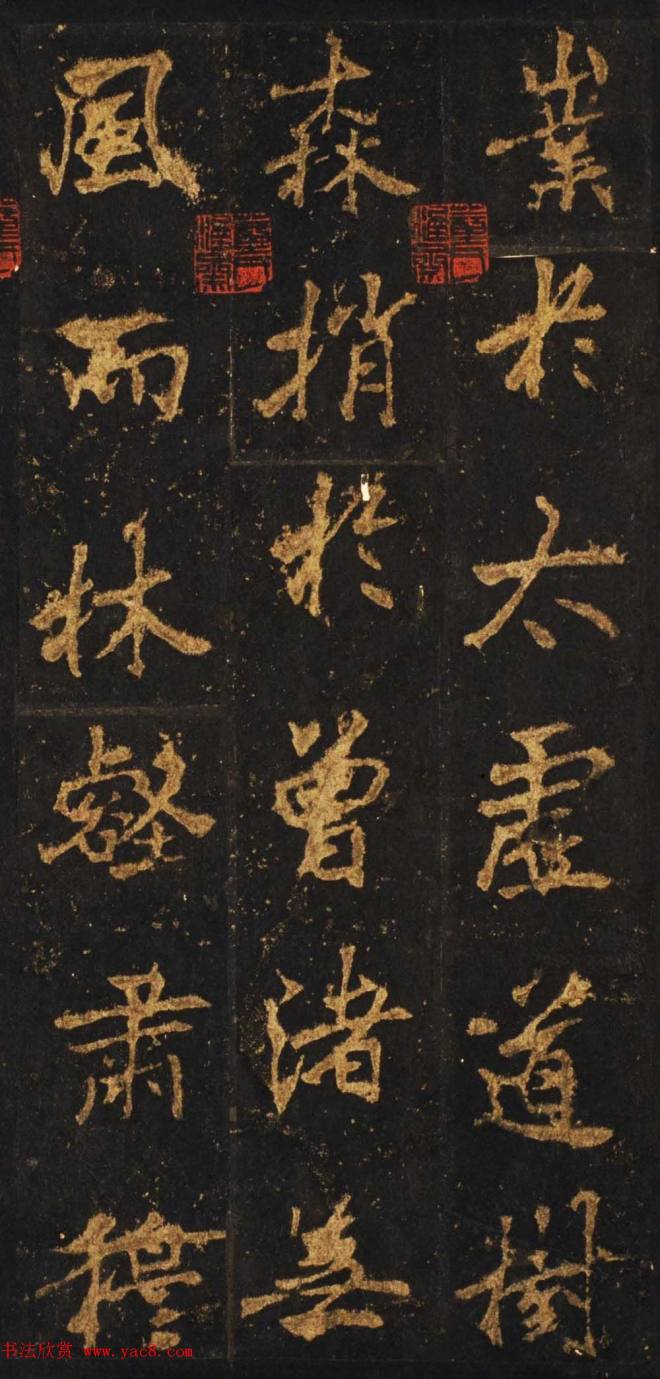 業於太虛道樹
森捎於曾渚無
風而林壑肅穆
书法欣赏 www.yac8.com